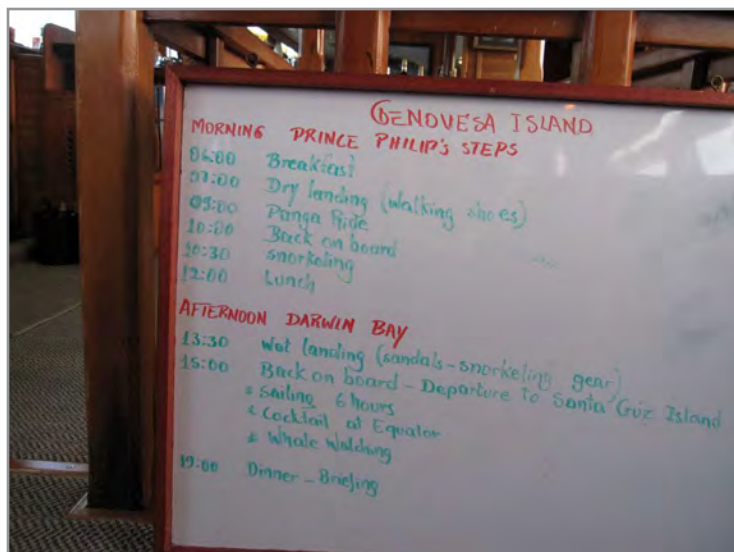 GENOVESA ISLAND
MORNING PRINCE PHILIP'S STEPS
06:00 Breakfast
07:00 Dry landing (walking shoes)
09:00 Panga Ride
10:00 Back on board
10:30 snorkeling
12:00 Lunch
AFTERNOON DARWIN BAY
13:30 Wet landing (sandals-snorkeling gear)
15:00 Back on board - Departure to Santa Cruz Island
* Sailing 6 hours
* Cocktail at Equator
* Whale Watching
19:00 Dinner - Briefing